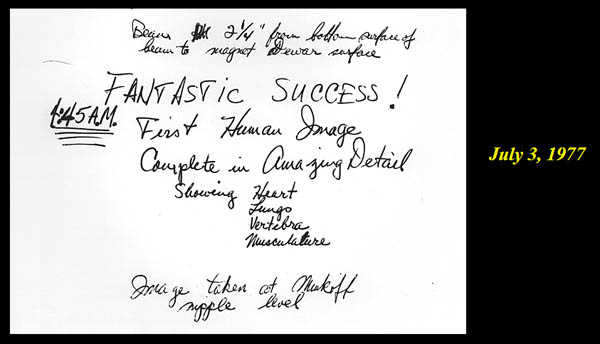 Beam 2 1/4" from bottom surface of
beam to magnet Dewar surface
FANTASTIC SUCCESS!
4:45 A.M. First Human Image
Complete in Amazing Detail
Showing Heart
Lungs
Vertebra
Musculature
Image taken at Minkoff
nipple level
July 3, 1977